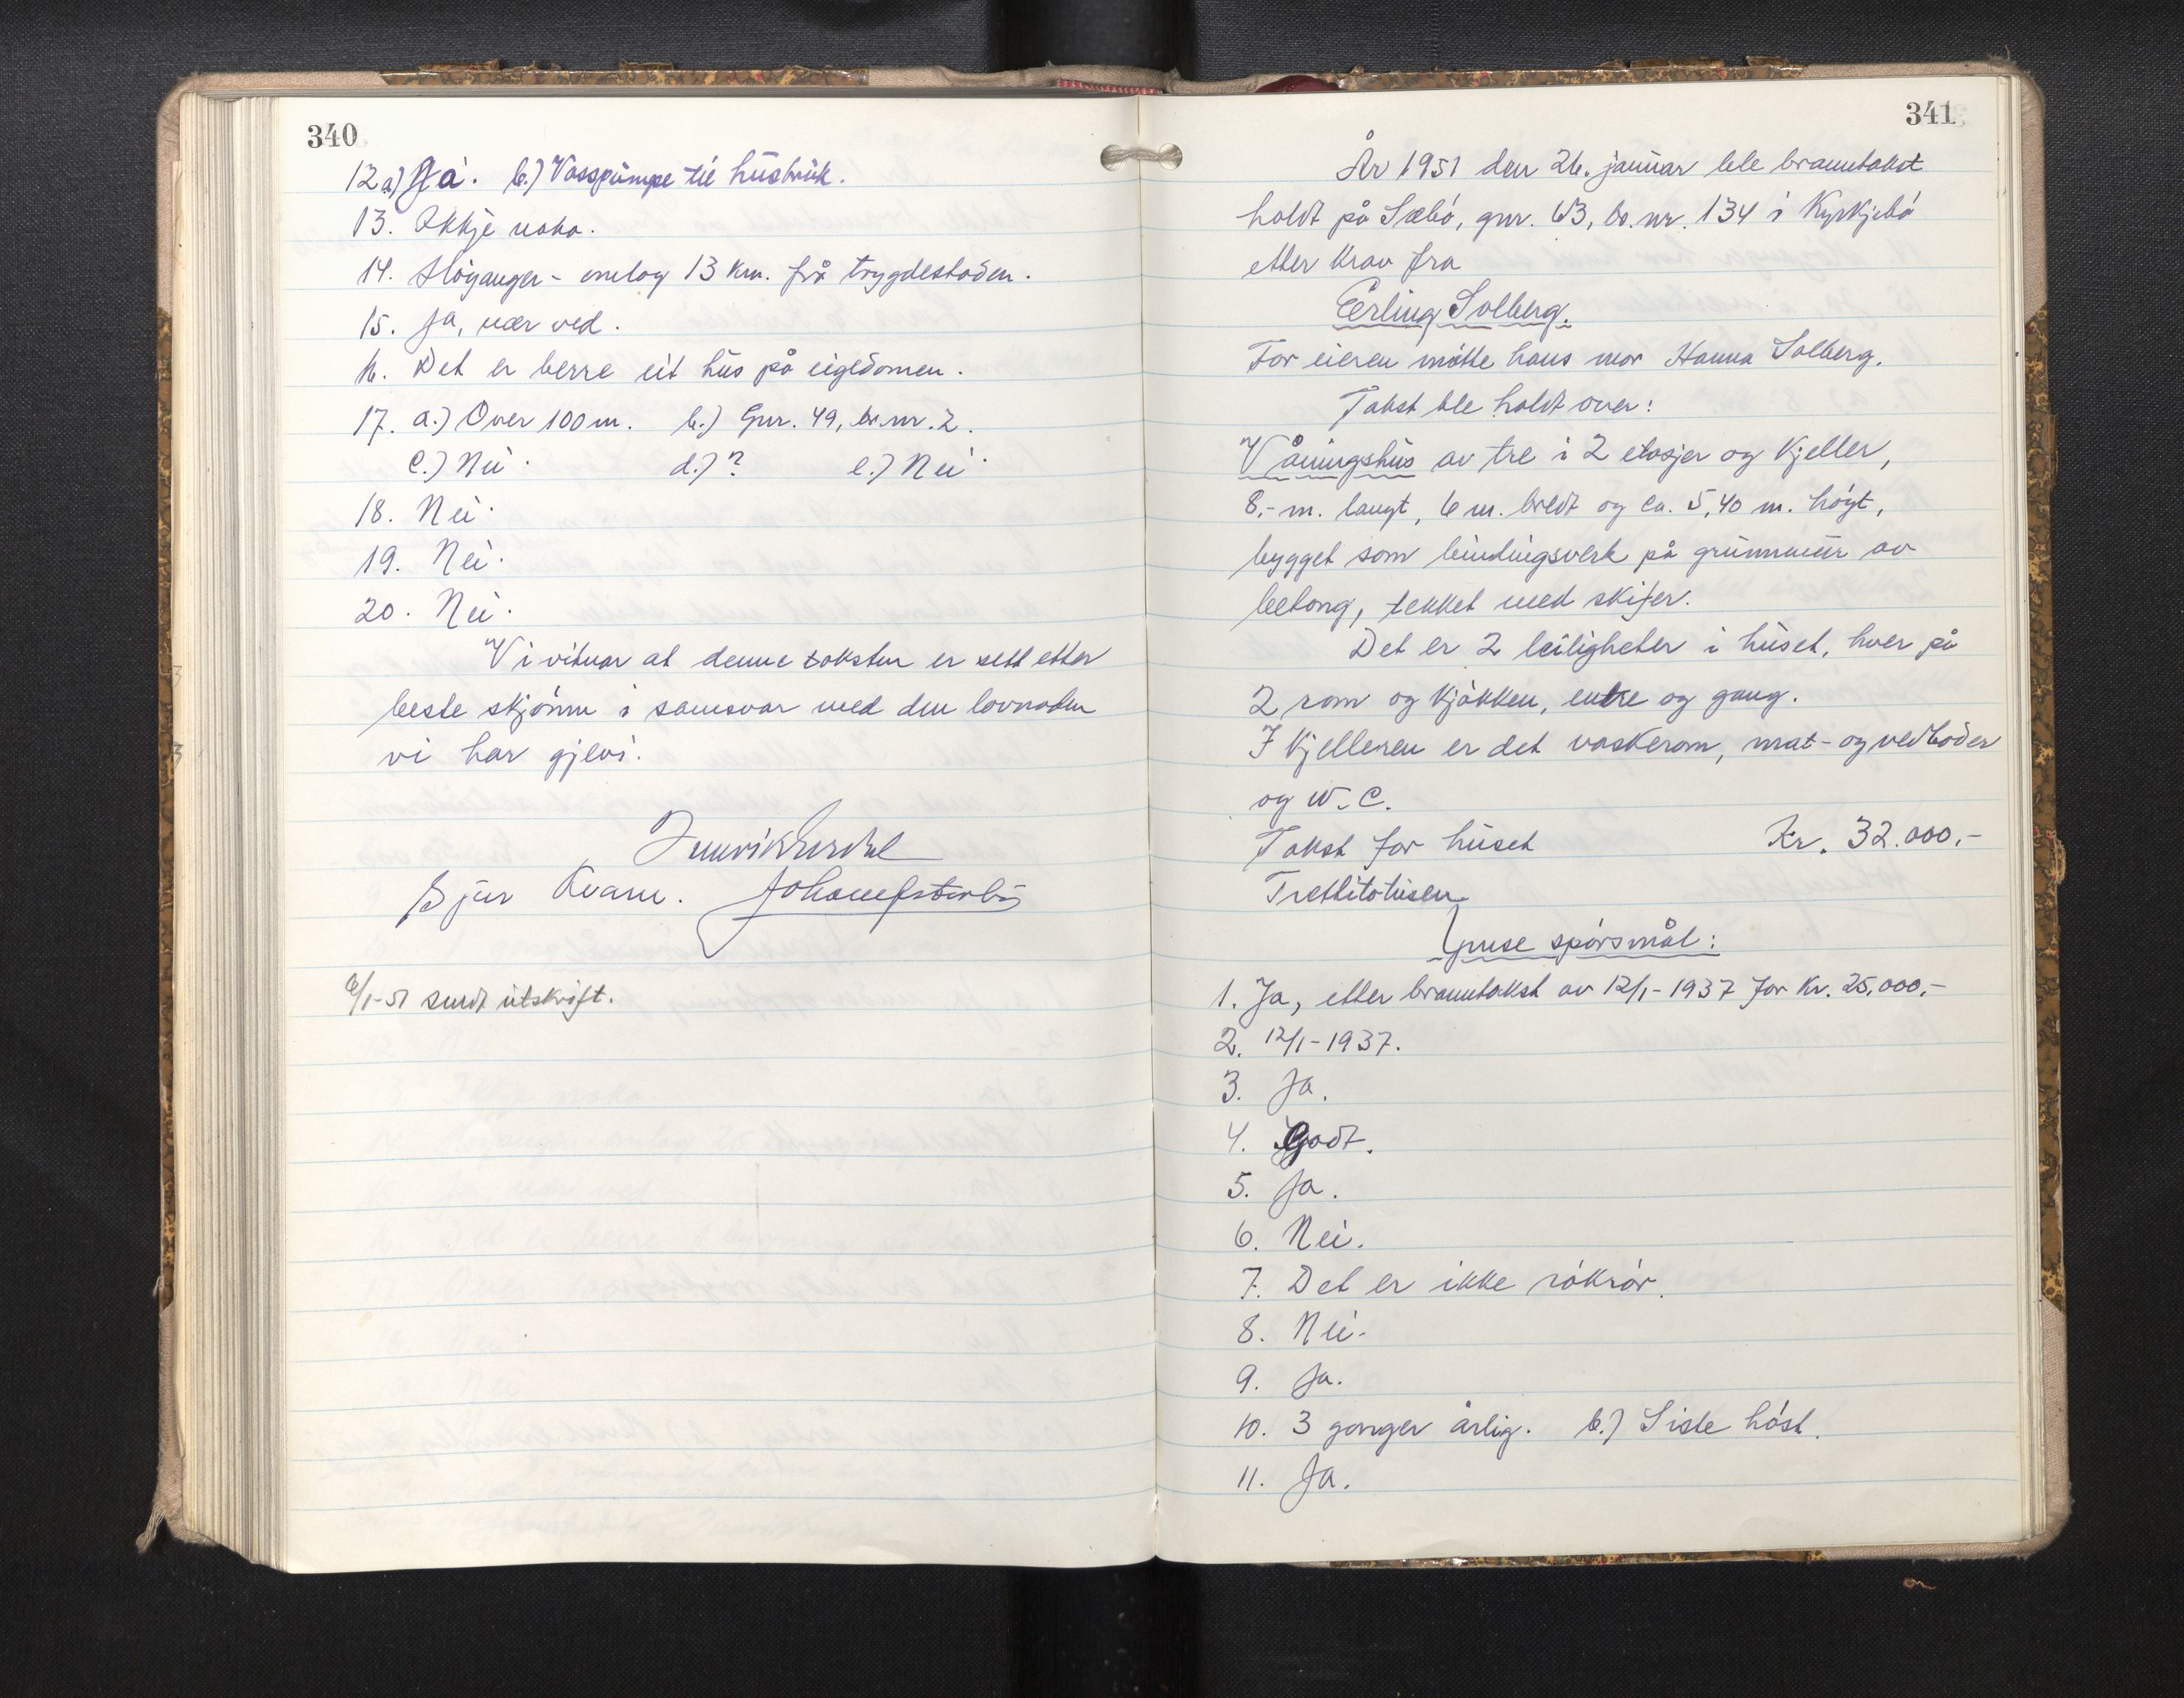 340
12 a) Ja. b.) Vasspumpe til husbruk.
13. Ikkje noko.
14. Høyanger - omlag 13 km. frå trygdestaden.
15. Ja, nær ved.
16. Det er berre eit hus på eigedomen.
17. a.) Over 100 m. b.) Gnr. 49, br.nr. 2.
c.) Nei. d.) ? e.) Nei.
18. Nei.
19. Nei.
20. Nei.
Vi vitnar at denne taksten er sett etter
beste skjønn i samsvar med den lovnaden
vi har gjevi.
Sjur Kvam.
6/1-51 sendt utskrift.
341
År 1951 den 26. januar ble branntakst
holdt på Sæbø, gnr. 63, br. nr. 134 i Kyrkjebø
etter krav fra
Erling Solberg.
For eieren møtte hans mor Hanna Solberg.
Takst ble holdt over:
Våningshus av tre i 2 etasjer og kjeller,
8,- m. langt, 6 m. bredt og ca. 5,40 m. høgt,
bygget som bindingsverk på grunnmur av
betong, tekket med skifer.
Det er 2 leiligheter i huset, hver på
2 rom og kjøkken, entre og gang.
I kjelleren er det vaskerom, mat- og vedboder
og W.C.
Takst for huset Kr. 32.000,-
Trettitotusen
Ymse spørsmål:
1. Ja, etter branntakst av 12/1-1937 for kr. 25.000,-
2. 12/1-1937.
3. Ja.
4. Godt.
5. Ja.
6. Nei.
7. Det er ikke røkrør.
8. Nei.
9. Ja.
10. 3 ganger årlig. b.) Siste høst.
11. Ja.